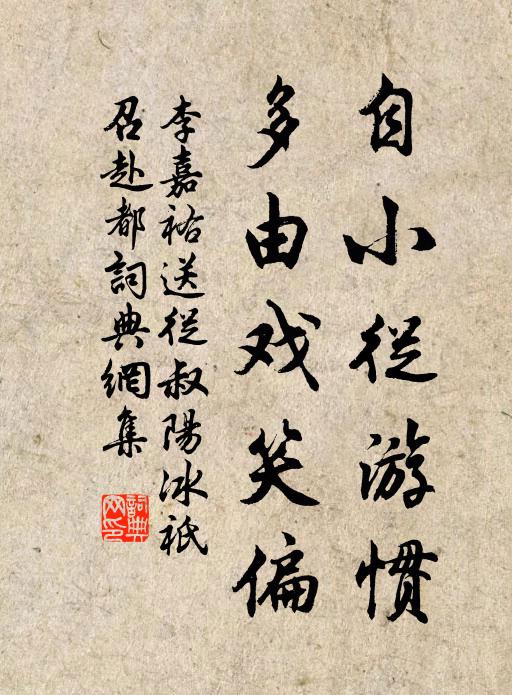 自小從游慣
多由戏笑偏
李嘉祐送從叔陽冰祇
召赴都詞典網集
詞典
网印